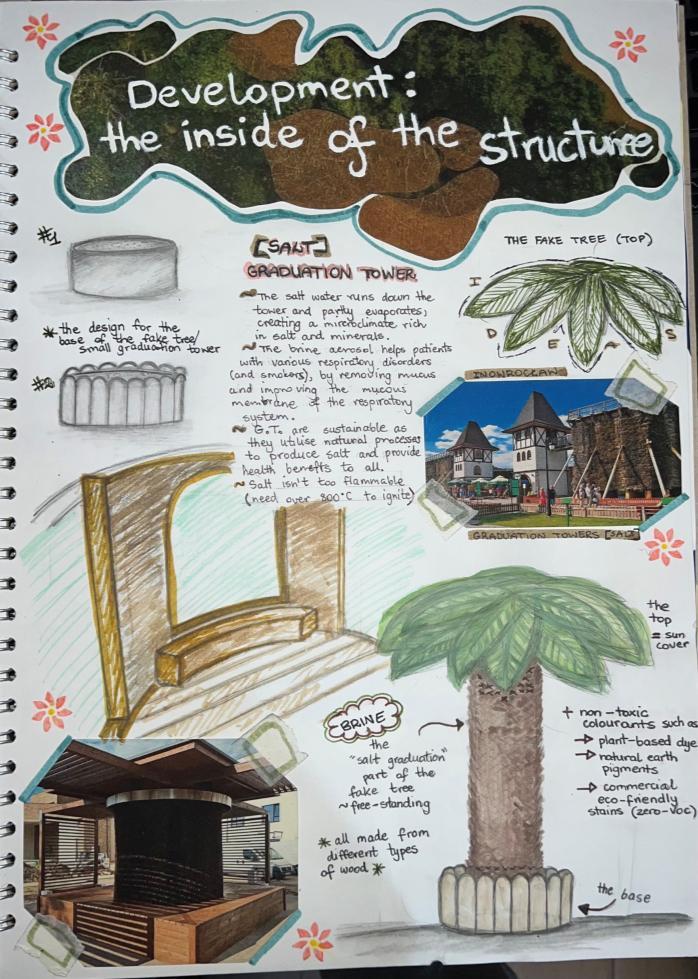 Development:
the inside of the structuree
#1
* the design for the
base of the fake tree/
small graduation tower
#2
[SALT]
GRADUATION TOWER
~ The salt water runs down the
tower and partly evaporates,
creating a microclimate rich
in salt and minerals.
~ The brine aerosol helps patients
with various respiratory disorders
(and smokers), by removing mucus
and improving the mucous
membrane of the respiratory
system.
~ G.T. are sustainable as
they utilise natural processes
to produce salt and provide
health benefits to all.
~ Salt isn't too flammable
(need over 800°C to ignite)
THE FAKE TREE (TOP)
I
D E A S
INOWROCŁAW
GRADUATION TOWERS [SALT]
the
top
= sun
cover
BRINE
the
"salt graduation"
part of the
fake tree
~ free-standing
* all made from
different types
of wood *
+ non-toxic
colourants such as
→ plant-based dye
→ natural earth
pigments
→ commercial
eco-friendly
stains (zero-VOC)
the base